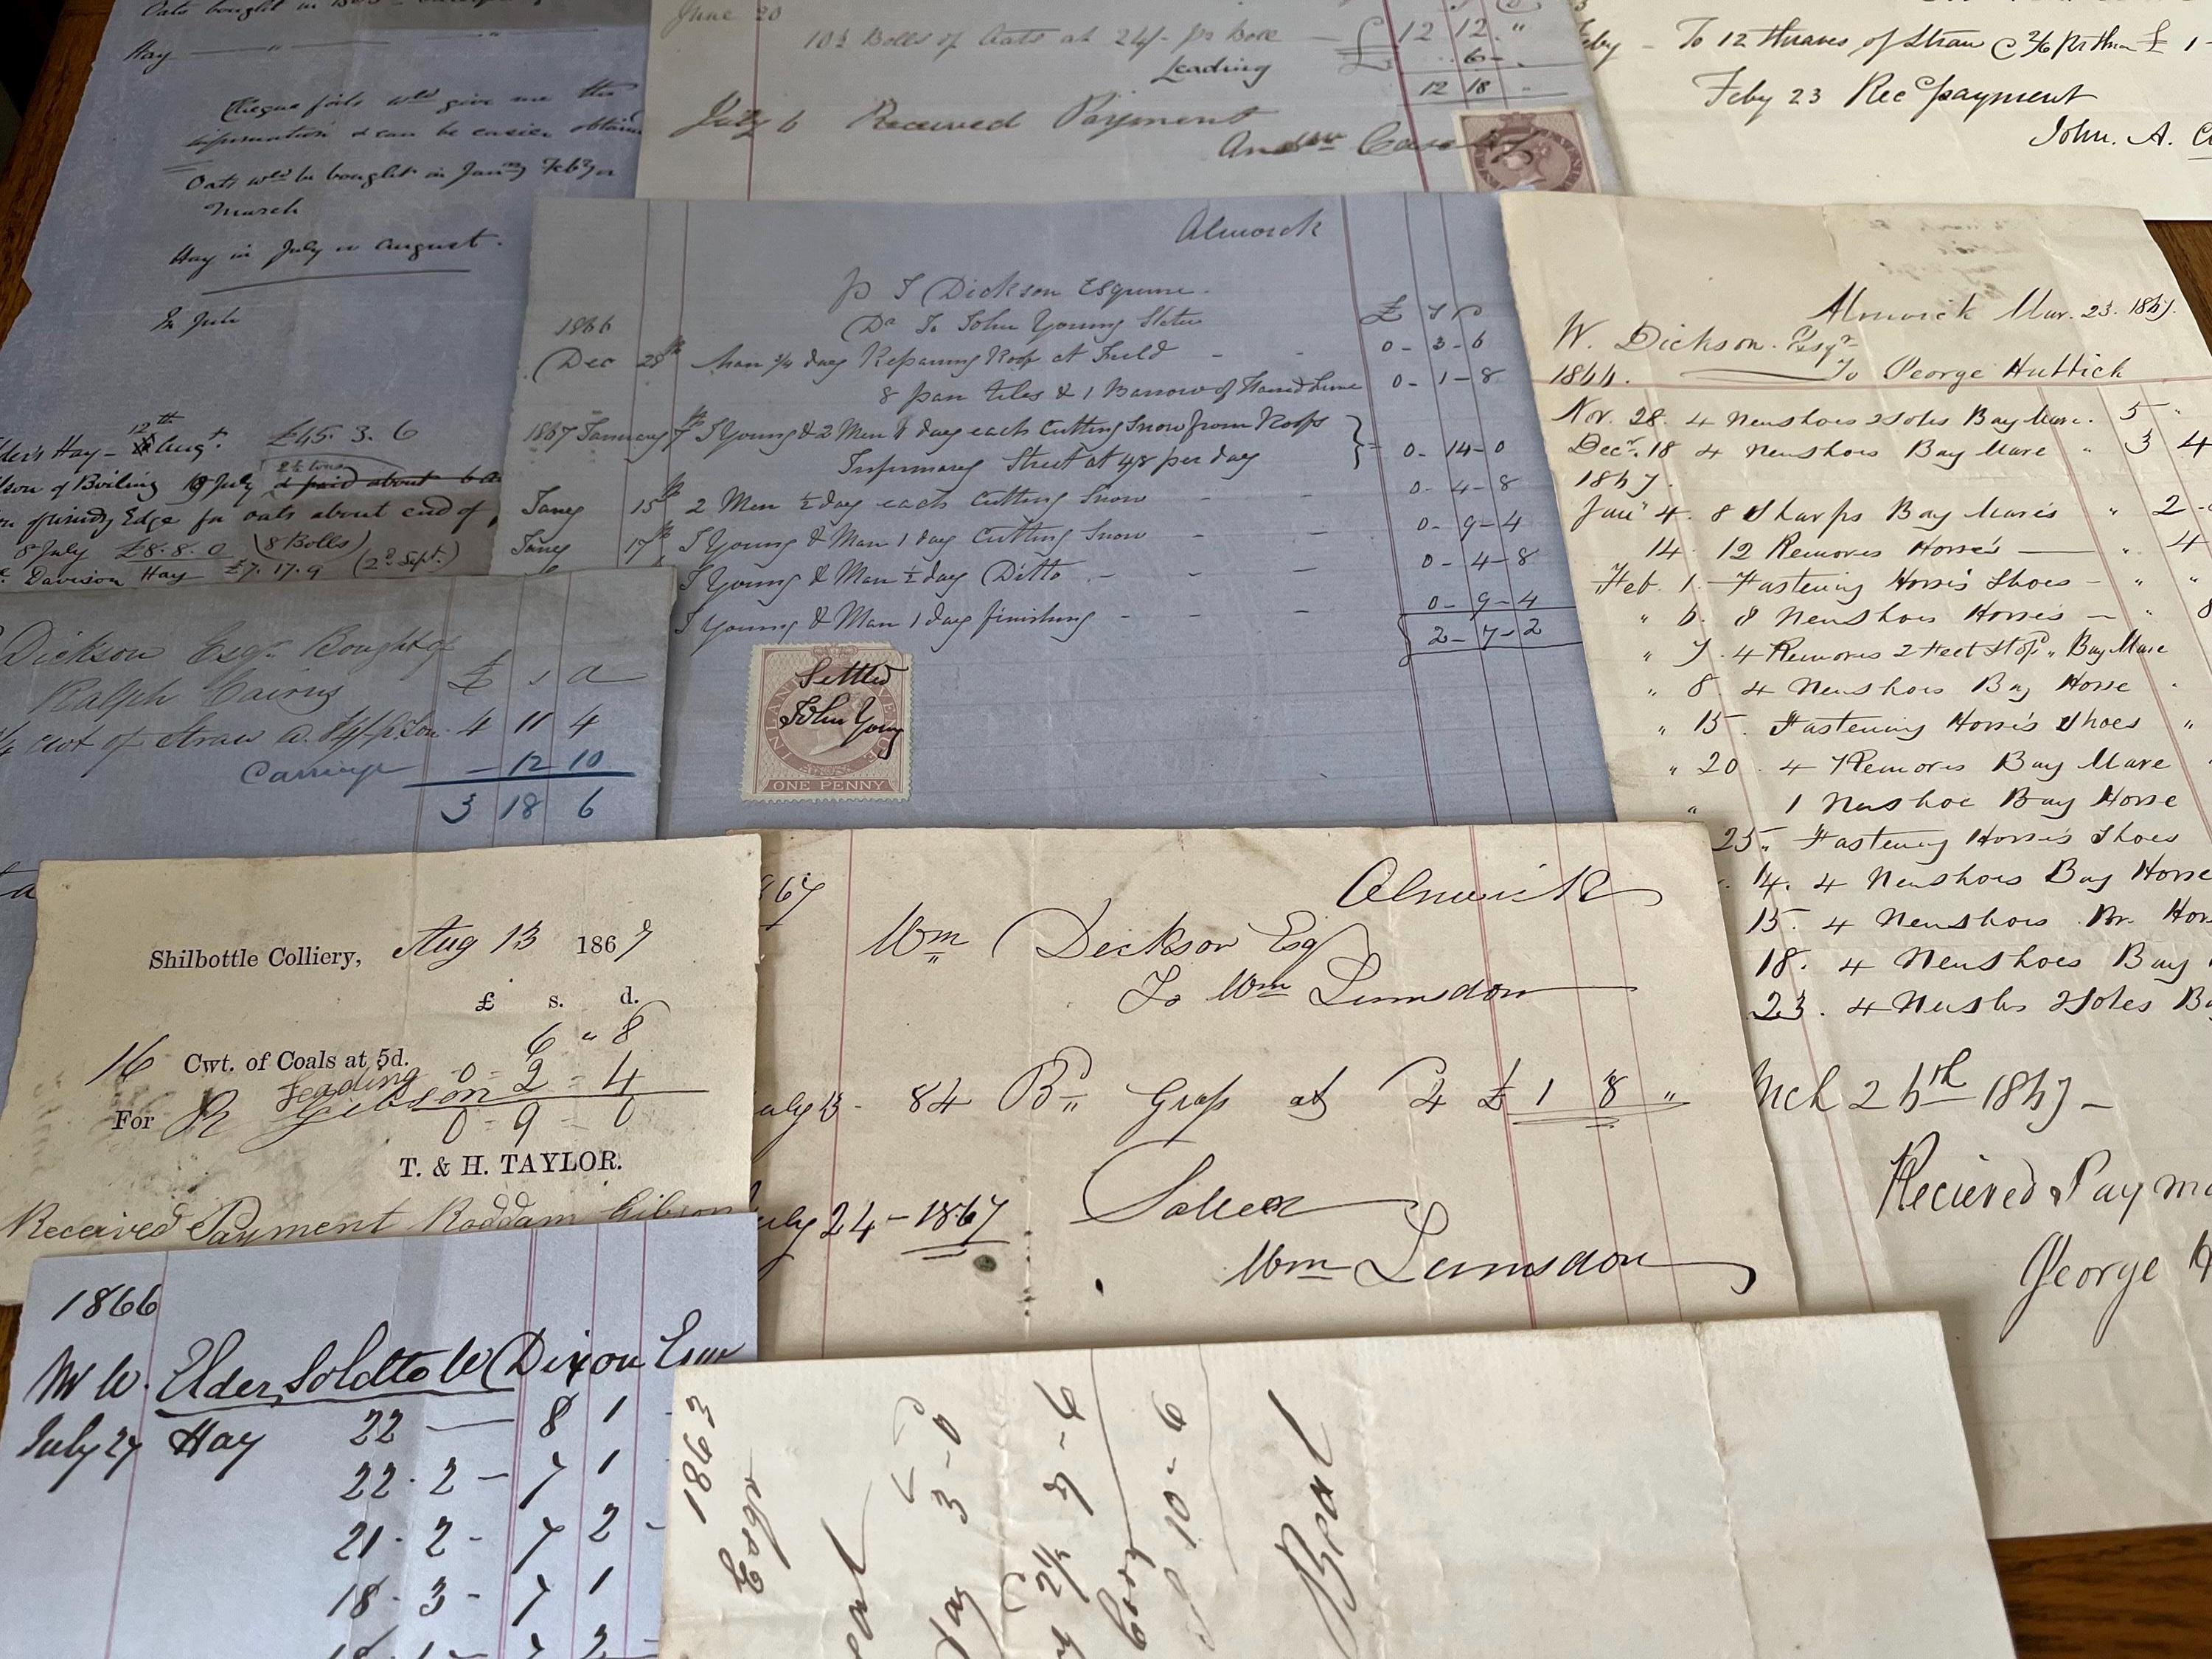 Oats bought in
Hay
Cheque foils wld give me the
information & can be easier obtain
Oats wld be bought in Jany Feby or
March
Hay in July or August.
In July
12th
Hay - Augt. £45. 3. 6
2½ tons
of Boiling July paid about
Edge for oats about end of
8 July £8. 8. 0 (8 Bolls)
Davison Hay £7. 17. 9 (2d Sept.)
June 20
10½ Bolls of Oats at 24/- pr Boll £ 12 12 "
Leading 6 -
12 18
July 6 Received Payment
Andrew
To 12 thraves of Straw @ 2/6 pr £ 1
Feby 23 Recd payment
John. A.
Alnwick
Dickson Esquire
Dr To John Young Slater
£ s D
1866
Dec 28th Man ¾ day Repairing Roof at Field 0 - 3 - 6
8 pan tiles & 1 Barrow of Haired Lime 0 - 1 - 8
1867 January 7th J Young & 2 Men 1 day each Cutting Snow from Roofs
Infirmary Street at 4/8 per day 0 - 14 - 0
Jany 15th 2 Men ½ day each Cutting Snow 0 - 4 - 8
Jany 17th J Young & Man 1 day Cutting Snow 0 - 9 - 4
J Young & Man ½ day Ditto 0 - 4 - 8
J Young & Man 1 day finishing 0 - 9 - 4
2 - 7 - 2
Settled
John Young
INLAND REVENUE
ONE PENNY
Alnwick Mar. 23. 1867.
W. Dickson. Esqr
1866. To George Huttick
Nov. 28. 4 Newshoes 2 Soles Bay Mare. 5 "
Decr. 18 4 Newshoes Bay Mare " 3 4
1867.
Jany 4. 8 Sharps Bay Mares " 2
14. 12 Removes Horses " 4
Feb. 1. Fastening Horses Shoes " "
" 6. 8 Newshoes Horses " 8
" 7. 4 Removes 2 Feet Stopd " Bay Mare
" 8. 4 Newshoes Bay Horse
" 15. Fastening Horses Shoes "
" 20. 4 Removes Bay Mare
" 1 Newshoe Bay Horse
25. Fastening Horses Shoes
14. 4 Newshoes Bay Horse
15. 4 Newshoes Br. Hor
18. 4 Newshoes Bay
23. 4 Newshs 2 Soles Ba
Mch 26th 1867 -
Recieved Payme
George H
Dickson Esqr. Bought of
Ralph Cairns £ s d
cwt of Straw 4 11 4
Carriage - 12 10
3 18 6
Shilbottle Colliery, Aug 13 1867
£ s. d.
16 Cwt. of Coals at 5d. 6 " 8
Leading 0 = 2 = 4
For R Gibson 0 = 9 = 0
T. & H. TAYLOR.
Received Payment Roddam Gibson
867 Alnwick
Wm Dickson Esq
To Wm Lumsdon
uly 13 - 84 Bs Grass at 4 £ 1 8 "
uly 24 - 1867 Settled
Wm Lumsdon
1866
Mr W. Elder Sold to W Dixon Esqr
July 27 Hay 22 - 8 1
22 - 2 - 7 1
21 - 2 - 7 2
18 - 3 - 7 1
18 - 1 - 7 2
1863
3 - 0
2½ 7 - 6
10 - 6